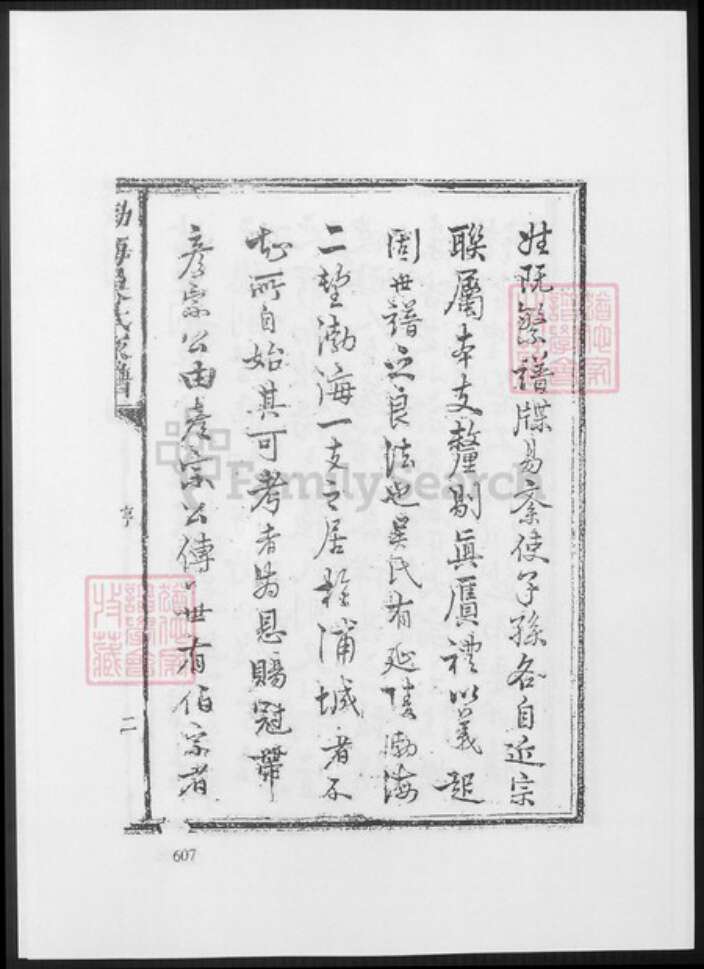 姓既繁譜牒易紊使子孫各自近宗
聯屬本支釐剔真贋禮以義起
固世譜之良法也吳氏有延陵渤海
二望渤海一支之居於浦城者不
知所自始其可考者為恩賜冠帶
彥宗公由彥宗公傳世有伯宗者
渤海吳氏家譜
亨
二
607
FamilySearch